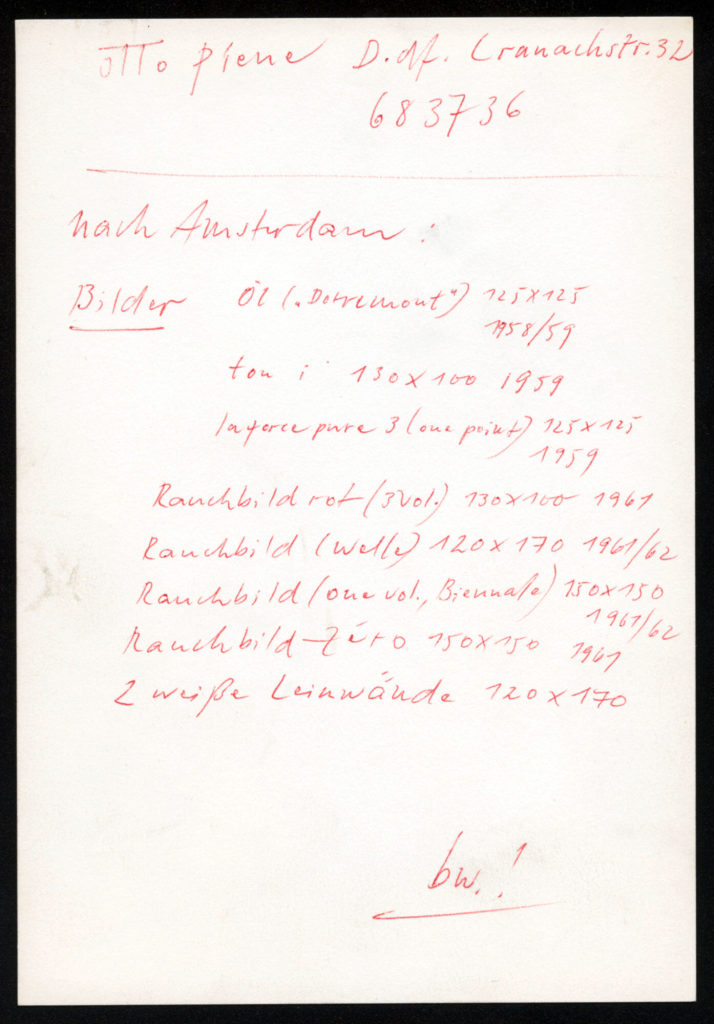 otto piene D.df. Cranachstr. 32
683736
nach Amsterdam :
Bilder Öl („Dotremont") 125x125
1958/59
ton i 130x100 1959
la force pure 3 (one point) 125x125
1959
Rauchbild rot (3 Vol.) 130x100 1961
Rauchbild (Welle) 120x170 1961/62
Rauchbild (one vol., Biennale) 150x150
1961/62
Rauchbild Zéro 150x150 1961
2 weiße Leinwände 120x170
bw.!